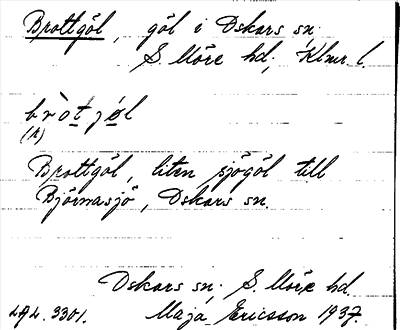 Brottgöl, göl i Oskars sn,
S. Möre hd, Klmr l.
bròtjø̀l
(A)
Brottgöl, liten sjögöl till
Björnasjö, Oskars sn.
Oskars sn, S. Möre hd.
Maja Ericsson 1937.
LAL. 3301.